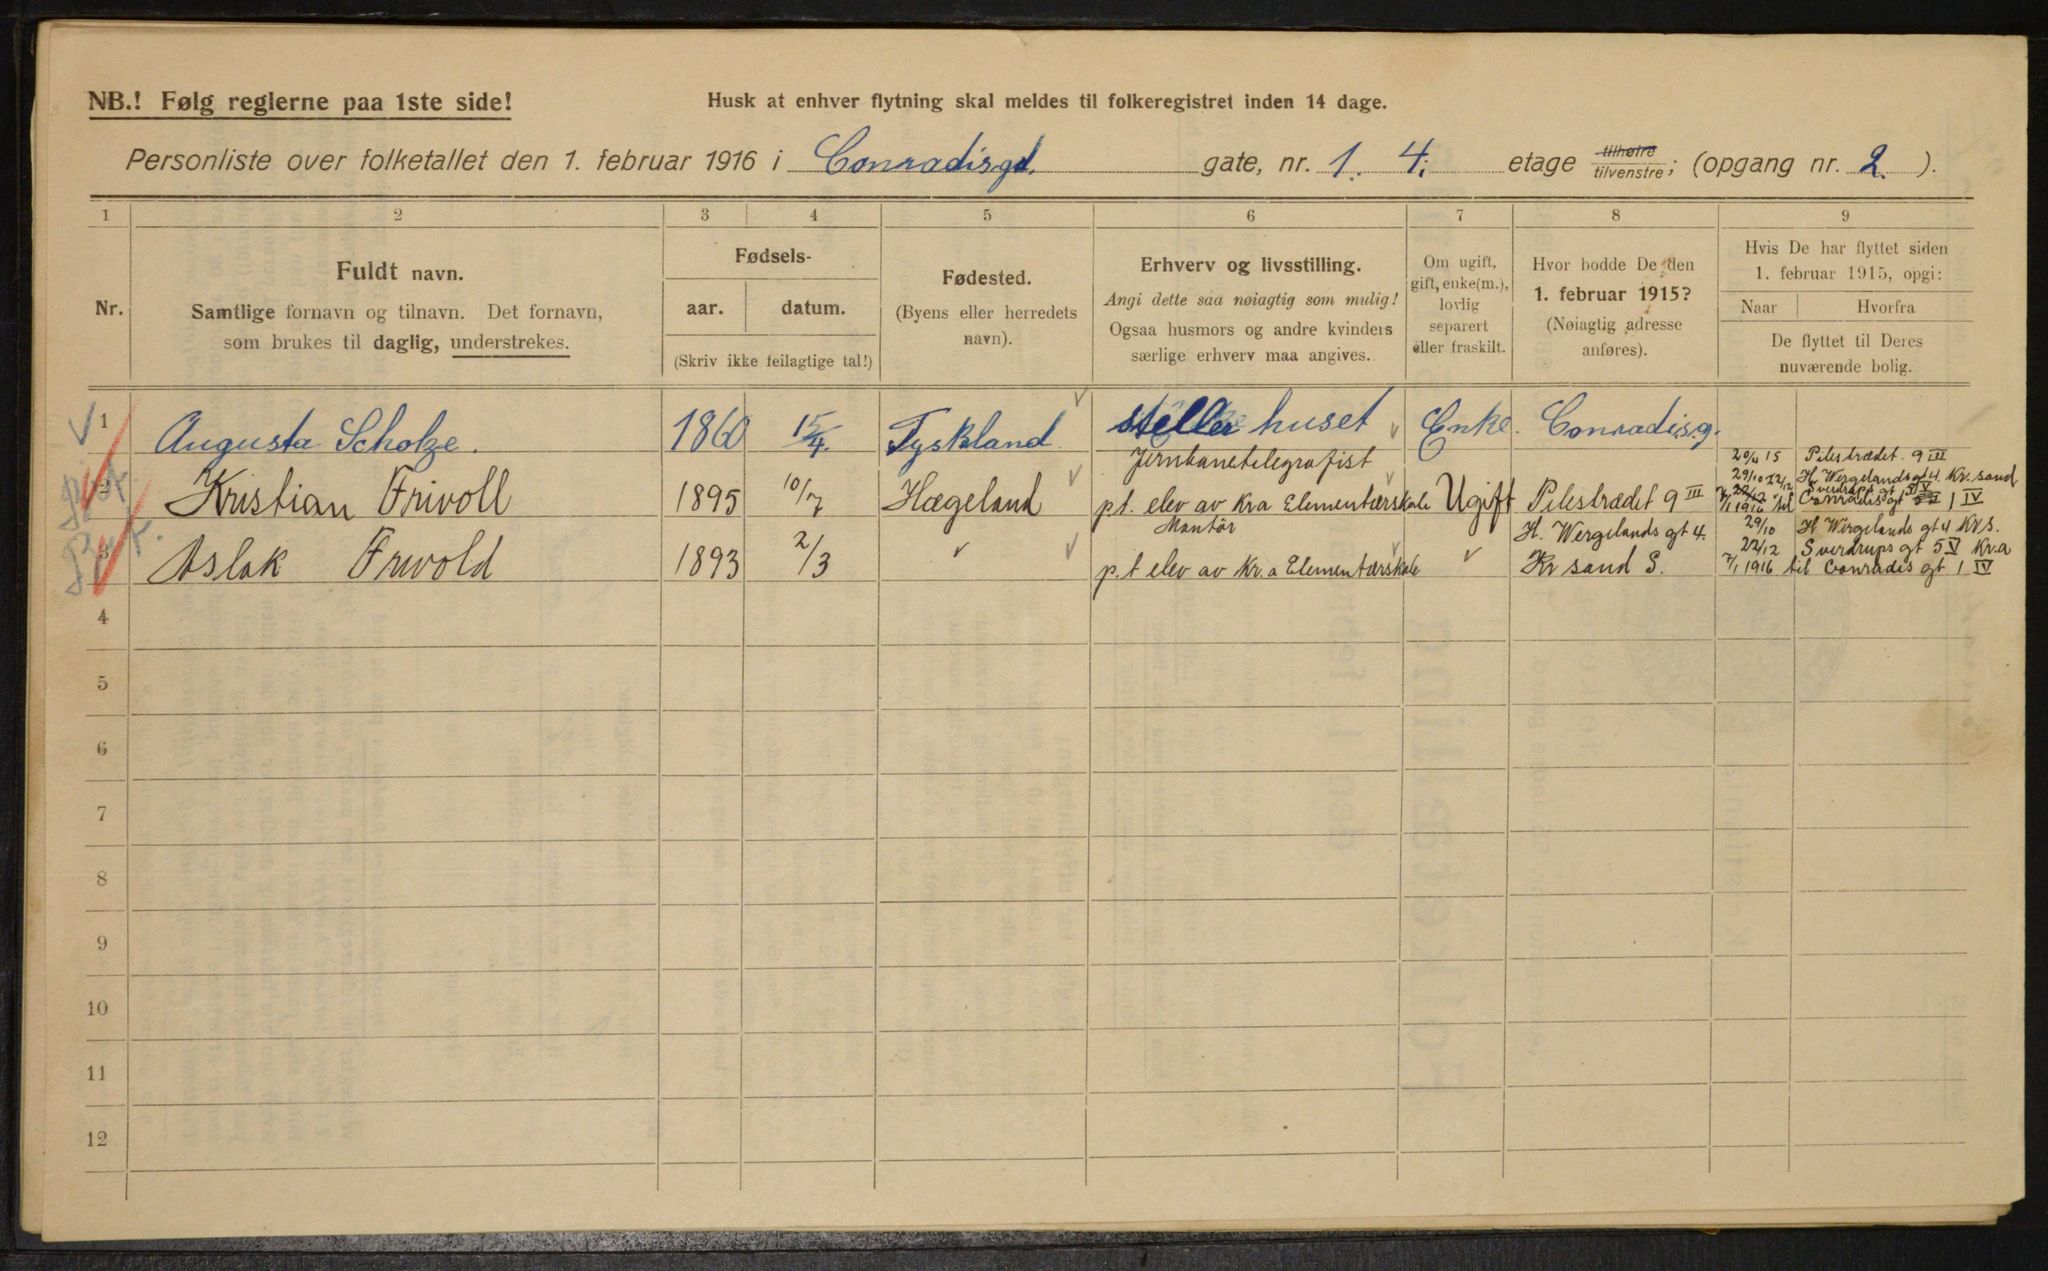 NB.! Følg reglerne paa 1ste side!
Husk at enhver flytning skal meldes til folkeregistret inden 14 dage.
Personliste over folketallet den 1. februar 1916 i Conradisgd. gate, nr. 1. 4. etage tilhøire tilvenstre; (opgang nr. 2. ).
1 2 3 4 5 6 7 8 9
Nr.
Fuldt navn.
Samtlige fornavn og tilnavn. Det fornavn,
som brukes til daglig, understrekes.
Fødsels-
aar. datum.
(Skriv ikke feilagtige tal!)
Fødested.
(Byens eller herredets
navn).
Erhverv og livsstilling.
Angi dette saa nøiagtig som mulig!
Ogsaa husmors og andre kvinders
særlige erhverv maa angives.
Om ugift,
gift, enke(m.),
lovlig
separert
eller fraskilt.
Hvor bodde De den
1. februar 1915?
(Nøiagtig adresse
anføres).
Hvis De har flyttet siden
1. februar 1915, opgi:
Naar Hvorfra
De flyttet til Deres
nuværende bolig.
1 Augusta Scholze. 1860 15/4. Tyskland steller huset Enke. Conradis.g.
Jernbanetelegrafist 20/4 15 Pilestrædet 9 III
29/10 22/12 H. Wergelandsgt 4. Kr. sand
2 Kristian Frivoll 1895 10/7 Hægeland p.t. elev av Kra Elementærskole Ugift Pilestrædet 9 III
7/1 1916 til Conradisgt 1 IV
Montør H. Wergelands gt 4. 29/10 H Wergelands gt 4 Kr S.
22/12 Sverdrups gt 5 V Kr.a
3 Aslak Frivold 1893 2/3 p.t elev av Kr.a Elementærskole Kr sand S. 7/1 1916 til Conradis gt 1 IV
4
5
6
7
8
9
10
11
12